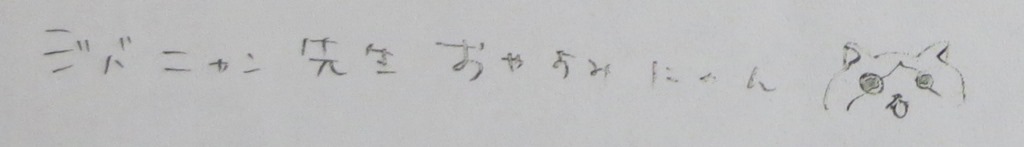 ジバニャン先生 おやすみにゃん